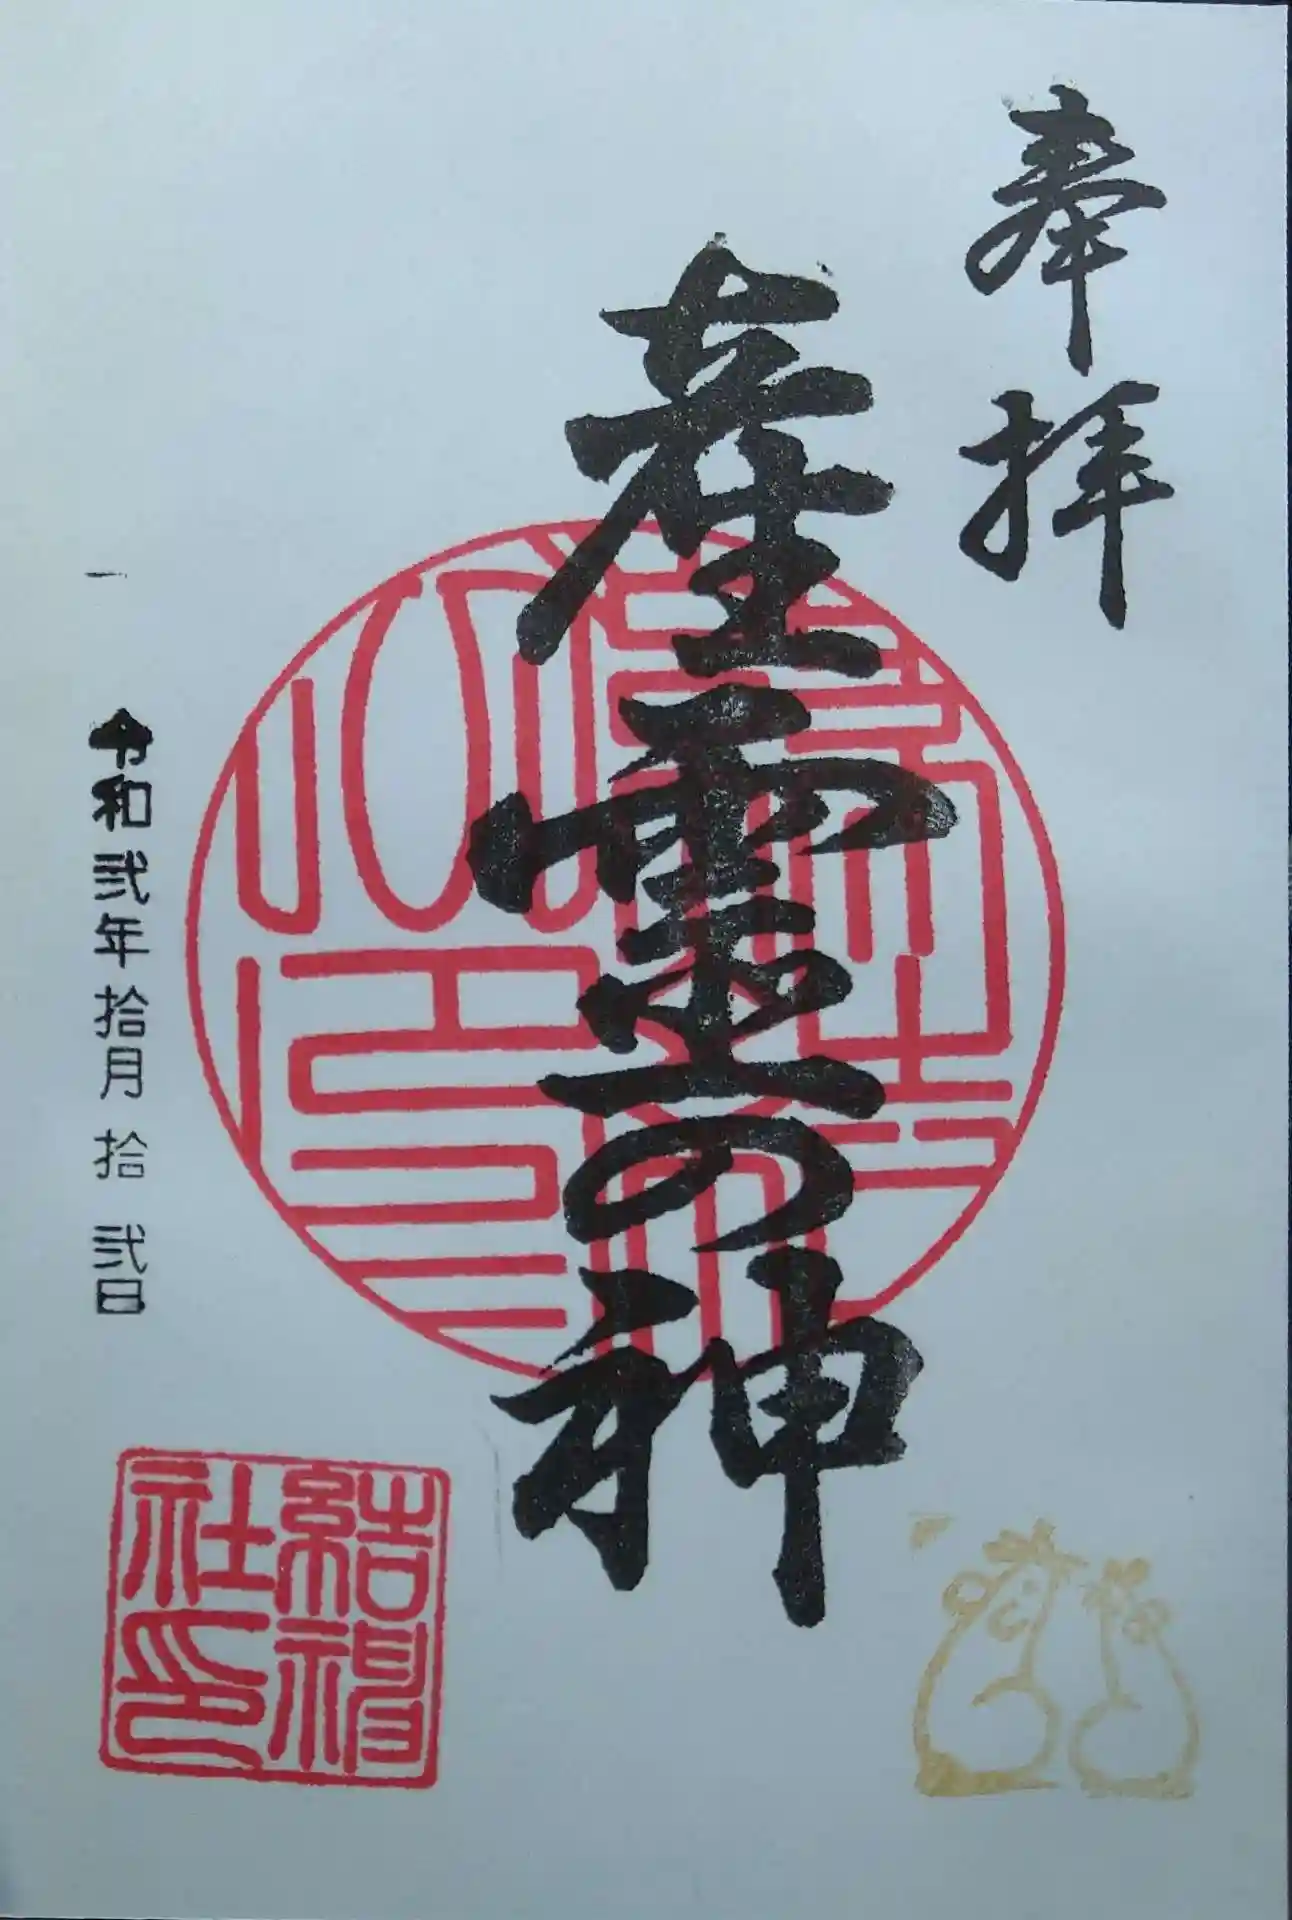 奉拝
産霊の神
令和弐年拾月拾弐日
結神
社印